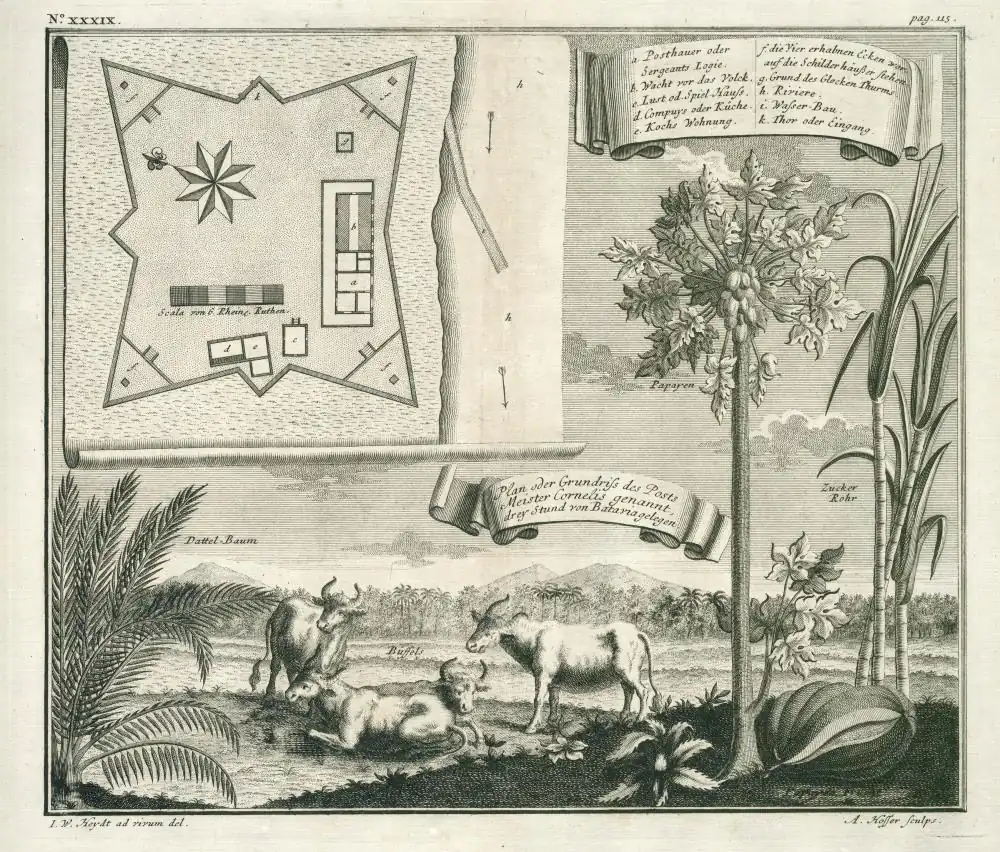 N.º XXXIX.
pag. 115.
a. Posthauer oder
Sergeants Logie.
b. Wacht vor das Volck.
c. Lust od. Spiel-Hauss.
d. Compuys oder Küche.
e. Kochs Wohnung.
f. die Vier erhabnen Ecken wor
auf die Schilderhäußer stehen.
g. Grund des Glocken Thurms
h. Riviere.
i. Waßer-Bau.
k. Thor oder Eingang.
k
f
f
g
h
b
i
a
Scala von 6. Rheinl. Ruthen.
h
d
e
c
f
f
Papayen
Zucker
Rohr
Plan oder Grundriss des Posts
Meister Cornelis genannt,
drey Stund von Batavia gelegen
Dattel-Baum
Büffels
I. W. Heydt ad vivum del.
A. Hoffer sculps.